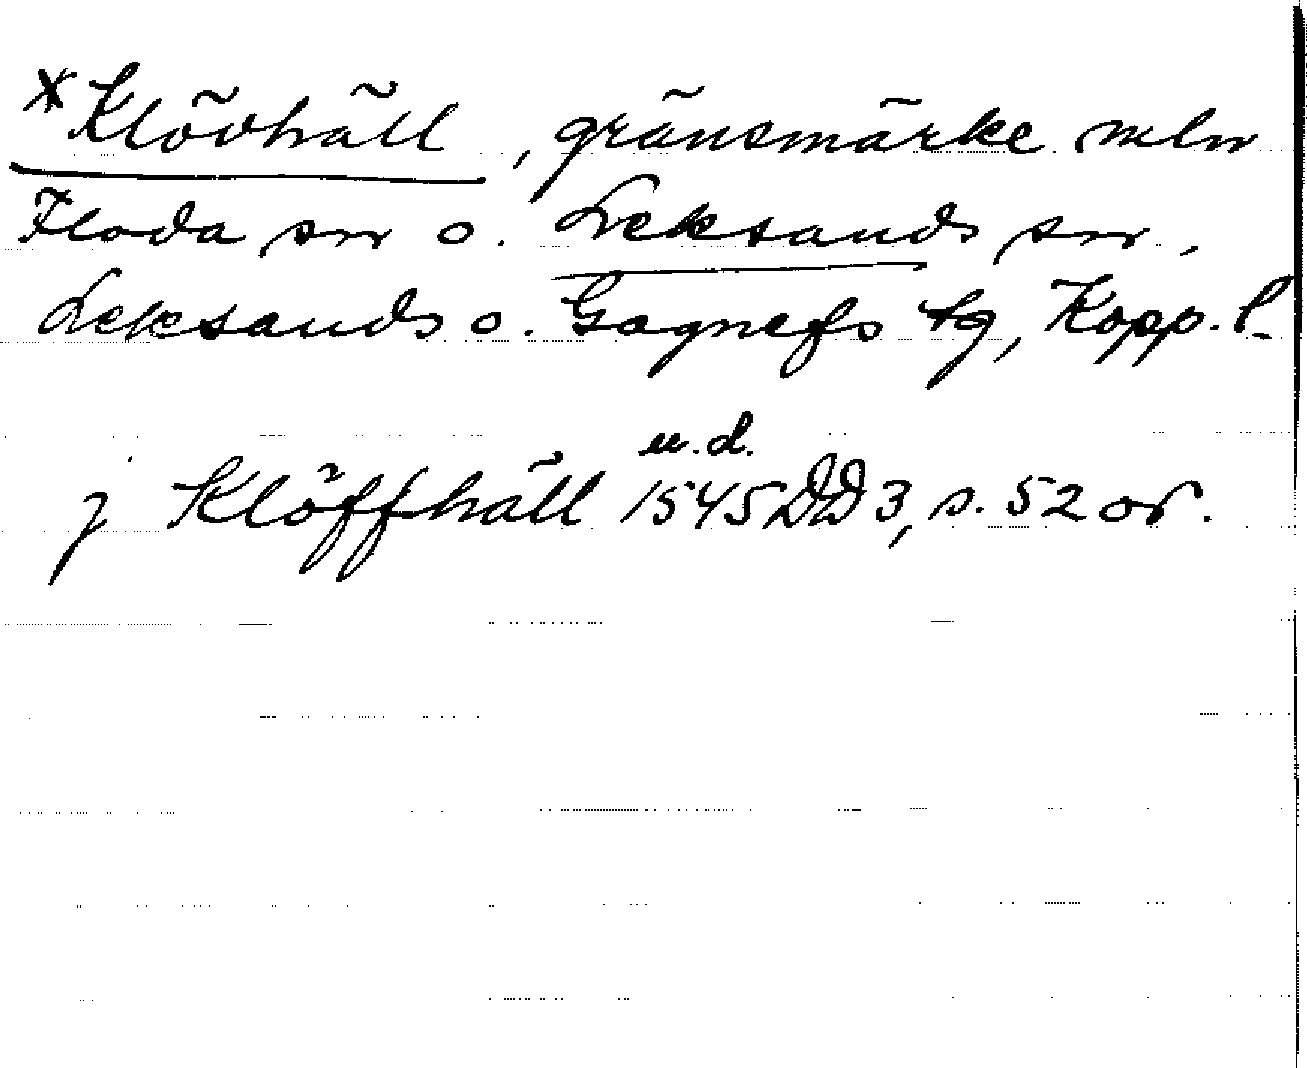 *Klövhäll, gränsmärke mln
Floda sn o. Leksands sn,
Leksands o. Gagnefs tg, Kopp. l.
u.d.
j Klöffhäll 1545 DD 3, s. 52 or.